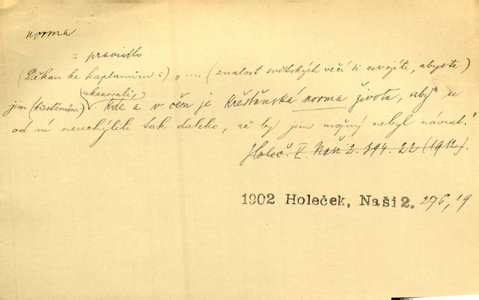 norma
= pravidlo
(Děkan ke kaplanům:) „.... (znalost světských věcí si osvojíte, abyste)
jim (křesťanům) ukazovali, kde a v čem je křesťanská norma života, aby se
od ní neuchýlili tak daleko, že by jim možný nebyl návrat."
Holeč. I. Naši 2. 394. 22 (1912).
1902 Holeček, Naši 2. 276, 19